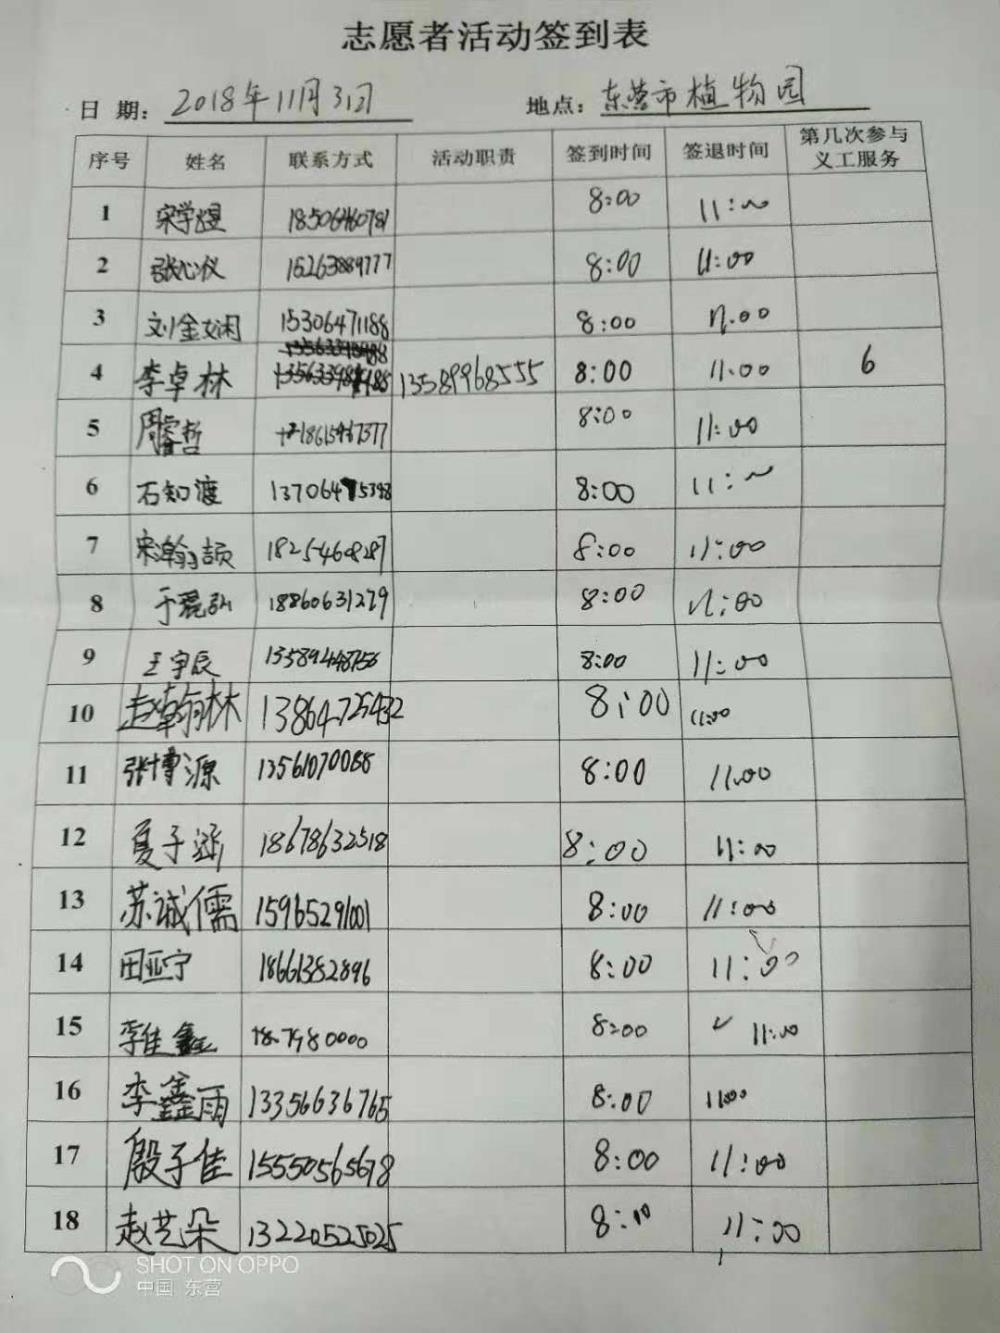 志愿者活动签到表
日 期： 2018年11月3日 地点： 东营市植物园
序号 姓名 联系方式 活动职责 签到时间 签退时间 第几次参与义工服务
1 宋学煜 18506460781 8:00 11:~
2 张心仪 15263889777 8:00 11:00
3 刘金娴 15306471188 8:00 11.00
4 李卓林 13589968555 8:00 11.00 6
5 周睿哲 18615967377 8:00 11:00
6 石知渡 8:00 11:~
7 宋瀚颉 18254608287 8:00 11:00
8 于晁弘 18860631279 8:00 11:00
9 王宇辰 8:00 11:00
10 赵翰林 13864725432 8:00 11:00
11 张博源 13561070088 8:00 11:00
12 夏子涵 18678632518 8:00 11:00
13 苏诚儒 15965291001 8:00 11:00
14 田亚宁 18661382896 8:00 11:00
15 李佳鑫 8:00 11:00
16 李鑫雨 13356636765 8:00 11:00
17 殷子佳 15550565678 8:00 11:00
18 赵艺朵 13220525025 8:00 11:00
SHOT ON OPPO
中国 东营